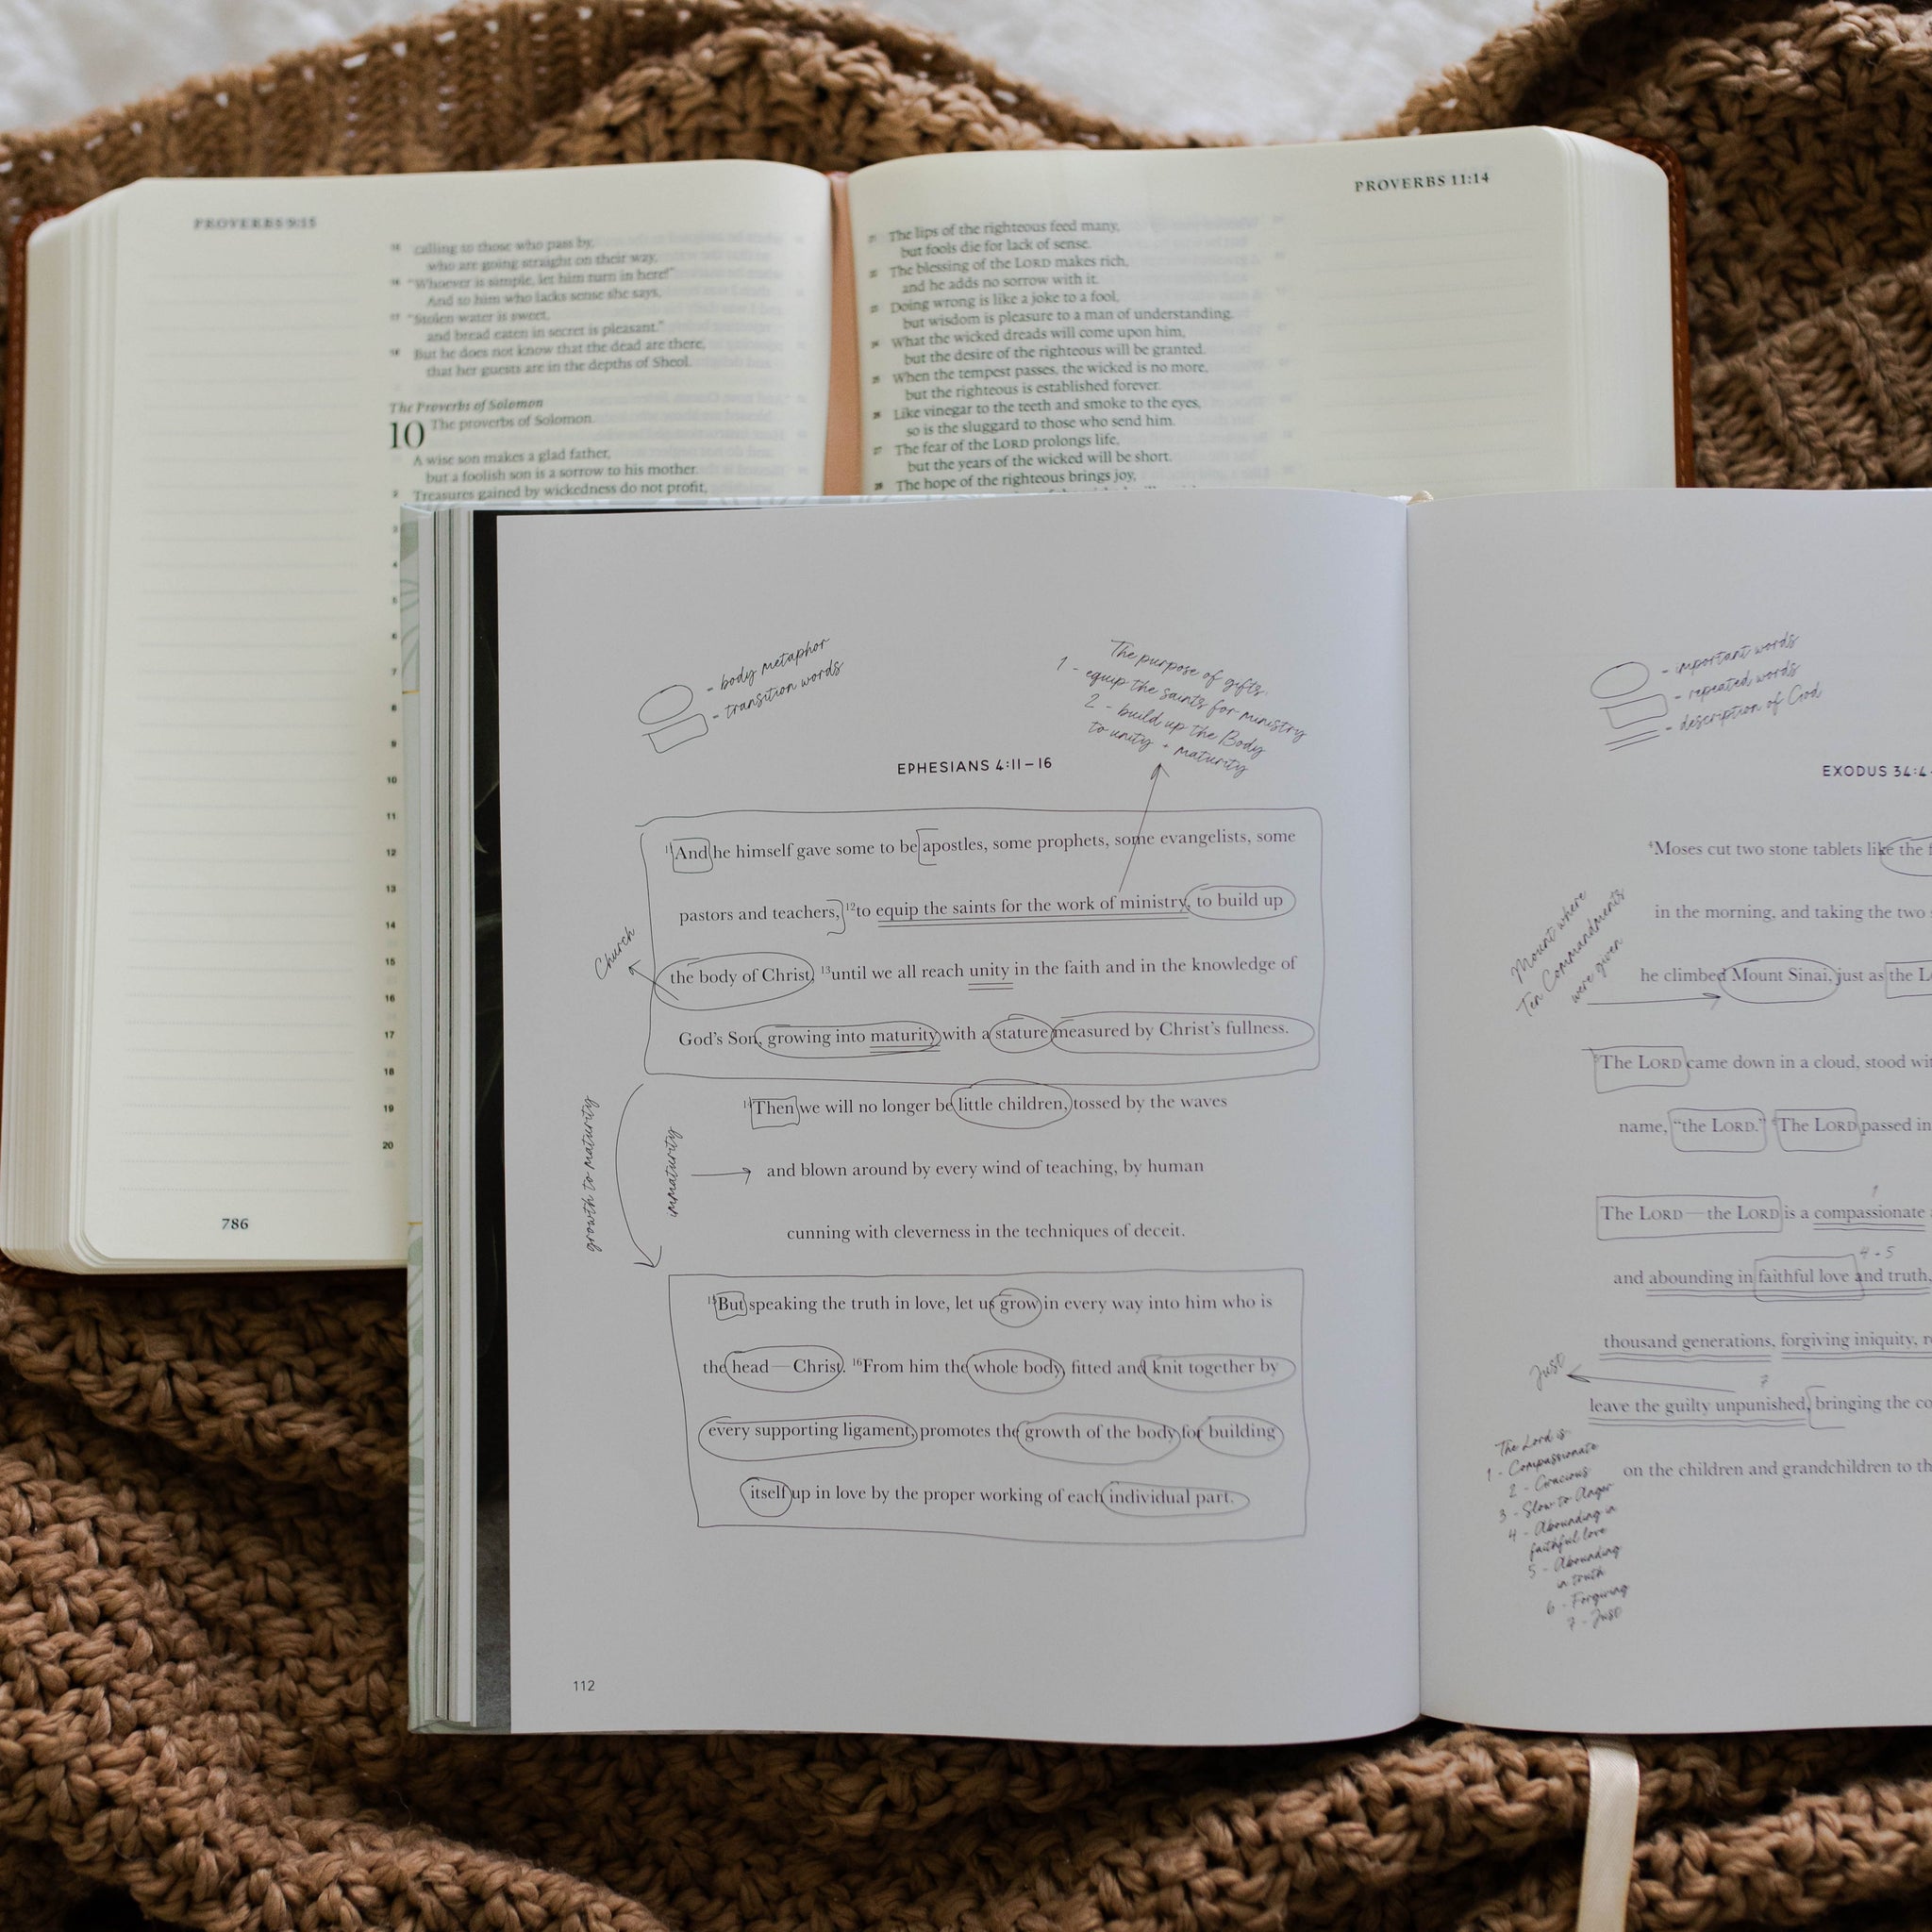 PROVERBS 9:15
15 calling to those who pass by,
who are going straight on their way,
16 "Whoever is simple, let him turn in here!"
And to him who lacks sense she says,
17 "Stolen water is sweet,
and bread eaten in secret is pleasant."
18 But he does not know that the dead are there,
that her guests are in the depths of Sheol.
The Proverbs of Solomon
10 The proverbs of Solomon.
A wise son makes a glad father,
but a foolish son is a sorrow to his mother.
2 Treasures gained by wickedness do not profit,
3
4
5
6
7
8
9
10
11
12
13
14
15
16
17
18
19
20
786
PROVERBS 11:14
21 The lips of the righteous feed many,
but fools die for lack of sense.
22 The blessing of the LORD makes rich,
and he adds no sorrow with it.
23 Doing wrong is like a joke to a fool,
but wisdom is pleasure to a man of understanding.
24 What the wicked dreads will come upon him,
but the desire of the righteous will be granted.
25 When the tempest passes, the wicked is no more,
but the righteous is established forever.
26 Like vinegar to the teeth and smoke to the eyes,
so is the sluggard to those who send him.
27 The fear of the LORD prolongs life,
but the years of the wicked will be short.
28 The hope of the righteous brings joy,
- body metaphor
- transition words
The purpose of gifts:
1 - equip the saints for ministry
2 - build up the Body
to unity + maturity
EPHESIANS 4:11–16
And he himself gave some to be apostles, some prophets, some evangelists, some
pastors and teachers, 12 to equip the saints for the work of ministry, to build up
Church
the body of Christ, 13 until we all reach unity in the faith and in the knowledge of
God's Son, growing into maturity with a stature measured by Christ's fullness.
growth to maturity
immaturity
14 Then we will no longer be little children, tossed by the waves
and blown around by every wind of teaching, by human
cunning with cleverness in the techniques of deceit.
15 But speaking the truth in love, let us grow in every way into him who is
the head—Christ. 16 From him the whole body, fitted and knit together by
every supporting ligament, promotes the growth of the body for building
itself up in love by the proper working of each individual part.
112
- important words
- repeated words
- description of God
EXODUS 34:4-
4 Moses cut two stone tablets like the
in the morning, and taking the two
Mount where
Ten Commandments
were given
he climbed Mount Sinai, just as the
5 The LORD came down in a cloud, stood
name, "the LORD." 6 The LORD passed in
1
The LORD—the LORD is a compassionate
4 + 5
and abounding in faithful love and truth,
thousand generations, forgiving iniquity,
Just
7
leave the guilty unpunished, bringing the
on the children and grandchildren to
The Lord is:
1 - Compassionate
2 - Gracious
3 - Slow to Anger
4 - Abounding in
faithful love
5 - Abounding
in truth
6 - Forgiving
7 - Just